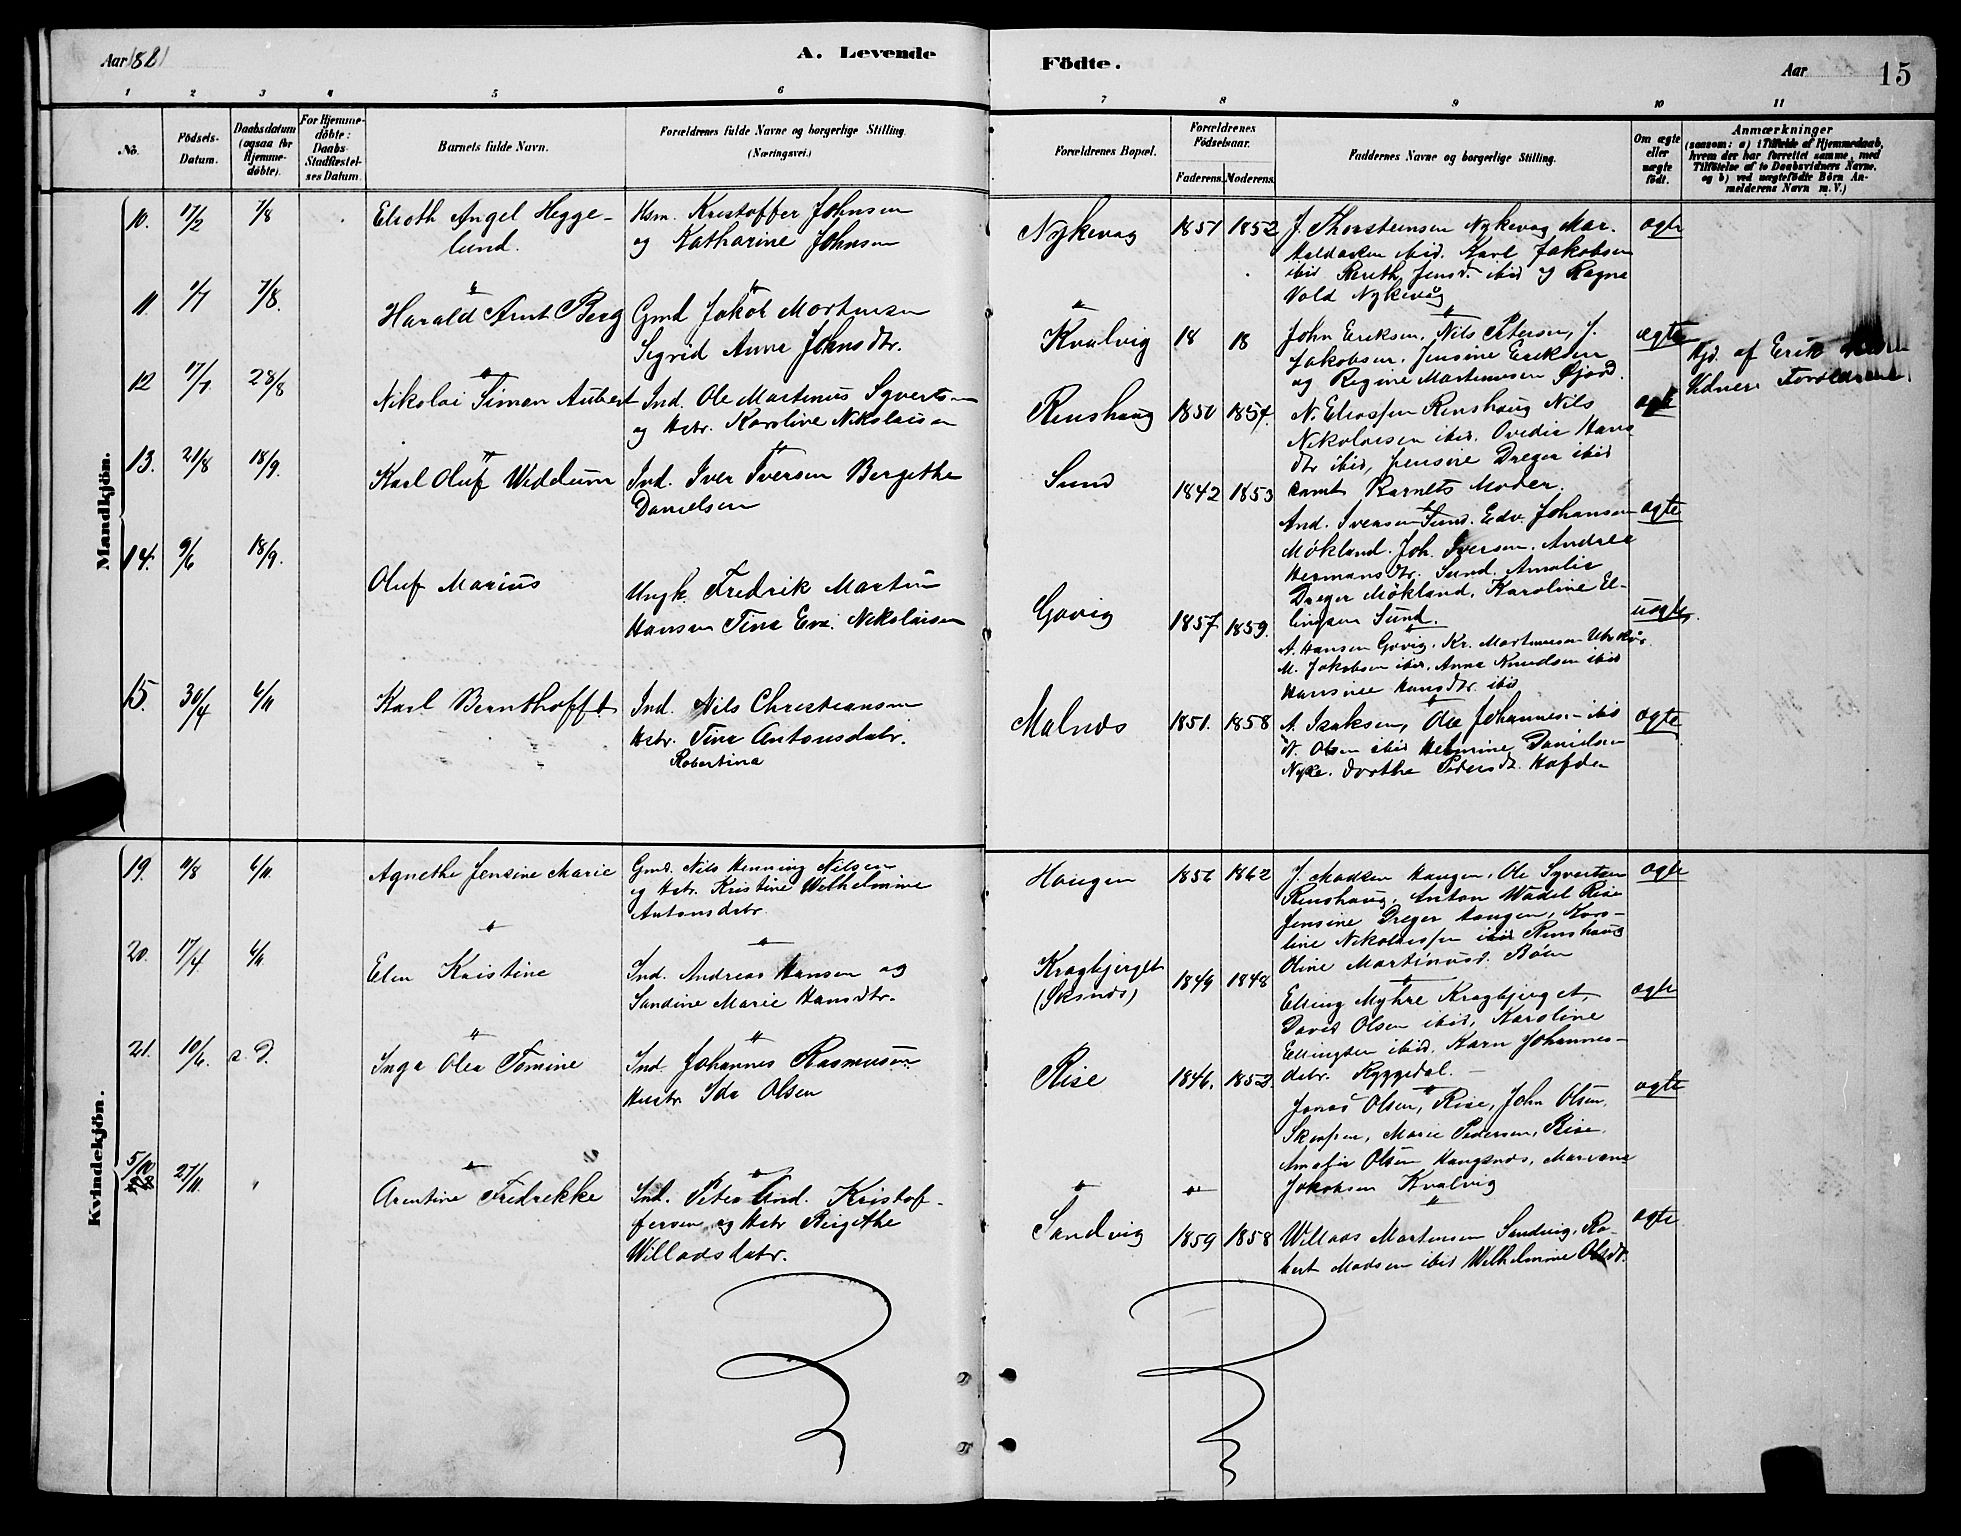 Aar 1881
A. Levende
Födte.
Aar
15
1 2 3 4 5 6 7 8 9 10 11
No.
Födsels-
Datum.
Daabsdatum
(ogsaa for
Hjemme-
döbte).
For Hjemme-
döbte:
Daabs-
Stadfæstel-
ses Datum.
Barnets fulde Navn.
Forældrenes fulde Navne og borgerlige Stilling.
(Næringsvei.)
Forældrenes Bopæl.
Forældrenes
Födselsaar.
Faderens. Moderens.
Faddernes Navne og borgerlige Stilling.
Om ægte
eller
uægte
födt.
Anmærkninger
(saasom: a) i Tilfælde af Hjemmedaab,
hvem der har forrettet samme, med
Tilföielse af to Daabsvidners Navne,
og b) ved uægtefödte Börn An-
melderens Navn m. V.)
Mandkjön.
10. 17/2 7/8
Elioth Angel Hegge-
lund.
Hsm. Kristoffer Johnsen
og Katharine Johnsen
Nykevag 1851 1852
J. Thorsteinsen Nykevag Mar.
ibid. Karl Jakobsen
ibid Bereth Jensd. ibid og Ragna
Vold Nykevåg
ægte
11 1/7 7/8.
Harald Arnt Berg
Gmd Jakob Mortensen
Sigrid Anna Johnsdtr.
Kvalvig 18 18
John Eriksen, Nils Petersen, J.
Jakobsen, Jensine Eriksen
og Regine Martinusen Fjord.
ægte
Hjd. af Erik
Vidner: Forældrene
12 17/7 28/8
Nikolai Simon Aubert
Ind. Ole Martinus Syvertsen
og Hstr. Karoline Nikolaisen
Renshaug 1850 1857.
N. Eliassen Renshaug Nils
Nikolaisen ibid. Ovedia Hans
dtr ibid, Jensine Dreyer ibid
samt Barnets Moder.
ægte
13. 21/8 18/9.
Karl Oluf Weddum
Ind. Iver Iversen Bergethe
Danielsen
Sund 1842 1853
And. Iversen Sund. Edv. Johansen
Mökland. Joh. Iversen. Andrea
Hermansdtr. Sund. Amalie
Dreyer Mökland, Karoline El-
lingsen Sund.
ægte
14. 9/6 18/9.
Oluf Marius
Ungk. Fredrik Martin
Hansen Tina Eva. Nikolaisen
Govig 1857 1859.
A. Hansen Govig. Kr. Martinusen
M. Jakobsen ibid. Anna Knudsen ibid
Hansine Hansdtr ibid
uægte
15. 30/4 6/11
Karl Bernthofft
Ind. Nils Christiansen
Hstr. Tina Antonsdatr.
Robertina
Malnes 1851. 1858
A. Isaksen, Ole Johannes.- ibid
N. Olsen ibid Helmine Danielsen
Nyke. Dorthe Pedersdtr. Hofden
ægte
Kvindekjön.
19. 11/8 6/11.
Agnethe Jensine Marie
Gmd. Nils Henning Nilsen
og Hstr. Kristine Wilhelmine
Antonsdatr.
Haugen 1856 1862
J. Madsen Haugen, Ole Syvertsen
Renshaug, Anton Wadel Rise
Jensine Dreyer Haugen, Karo-
line Nikolaisen ibid Renshaug
Oline Martinusd. Böen
ægte
20. 17/4. 6/11.
Elen Kristine
Ind. Andreas Hansen og
Sandine Marie Hansdtr.
Kragbjerget
(Skenes)
1849 1848
Elling Myhre Kragbjerget,
David Olsen ibid, Karoline
Ellingsen ibid. Karn Johannes-
datr. Ryggedal.
ægte
21. 10/6. s. D.
Inga Olea Tomine
Ind. Johannes Rasmusen
Hustr Ida Olsen
Rise 1846. 1852
Jonas Olsen, Rise, John Olsen,
Marie Pedersen, Rise.
Olsen Haugsnes, Mariane
Jakobsen Kvalvig
ægte
27/11. "
Arentine Fredrekke
Ind. Peter And. Kristof-
fersen og Hstr Birgithe
Willadsdatr.
Sandvig 1859 1858
Willads Martensen Sandvig, Ro-
bert Madsen ibid Wilhelmine Olsdtr.
ægte